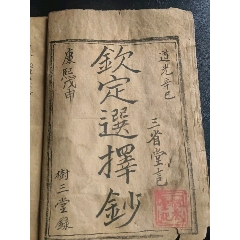 道光辛巳
三省堂言
欽定選擇鈔
康熙戊申
樹三堂錄